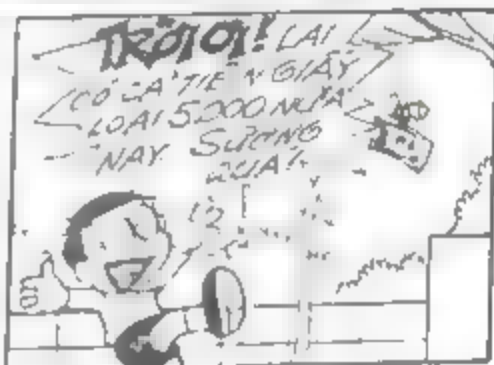 TRỜI ƠI! LẠI
CÓ CẢ TIỀN GIẤY
LOẠI 5000 NỮA
NÀY. SƯỚNG
QUÁ!